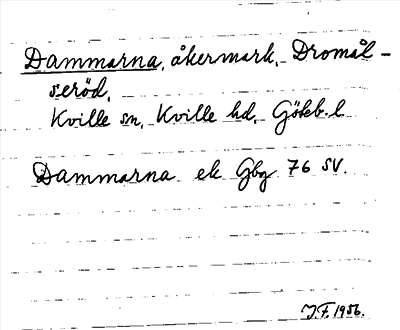 Dammarna, åkermark, Dromål-
seröd,
Kville sn, Kville hd, Göteb. l
Dammarna ek Gbg 76 SV.
J.F. 1956.